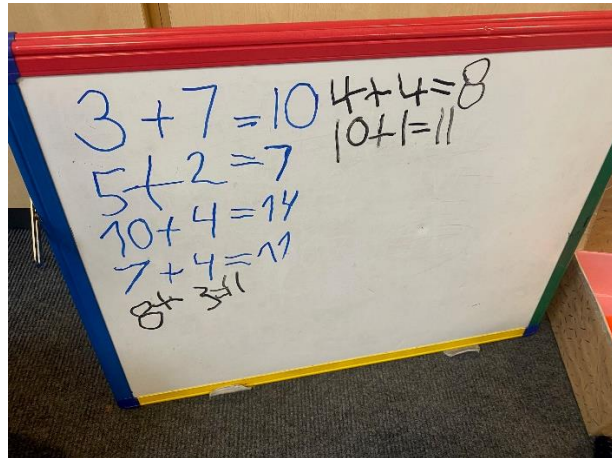 3+7=10
5+2=7
10+4=14
7+4=11
8+ 3=11
4+4=8
10+1=11